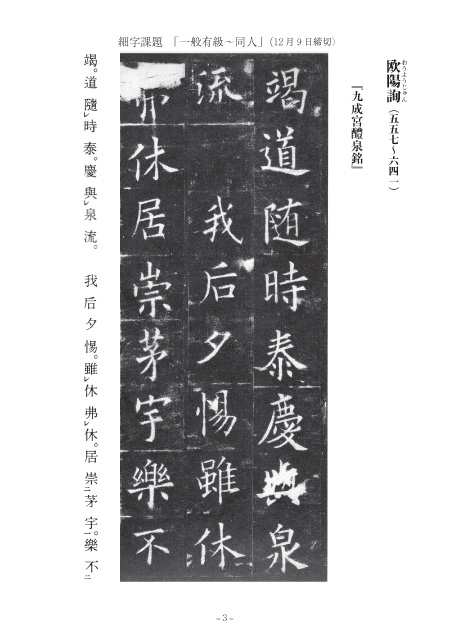 細字課題 「一般有級～同人」(12月9日締切)
欧陽詢(五五七～六四一)
おうようじゅん
『九成宮醴泉銘』
竭道随時泰慶與泉
流 我后夕惕雖休
弗休居崇茅宇樂不
竭。道 隨レ時 泰。慶 與レ泉 流。 我 后 夕 惕。雖レ休 弗レ休。居 崇二茅 宇一。樂 不二
- 3 -